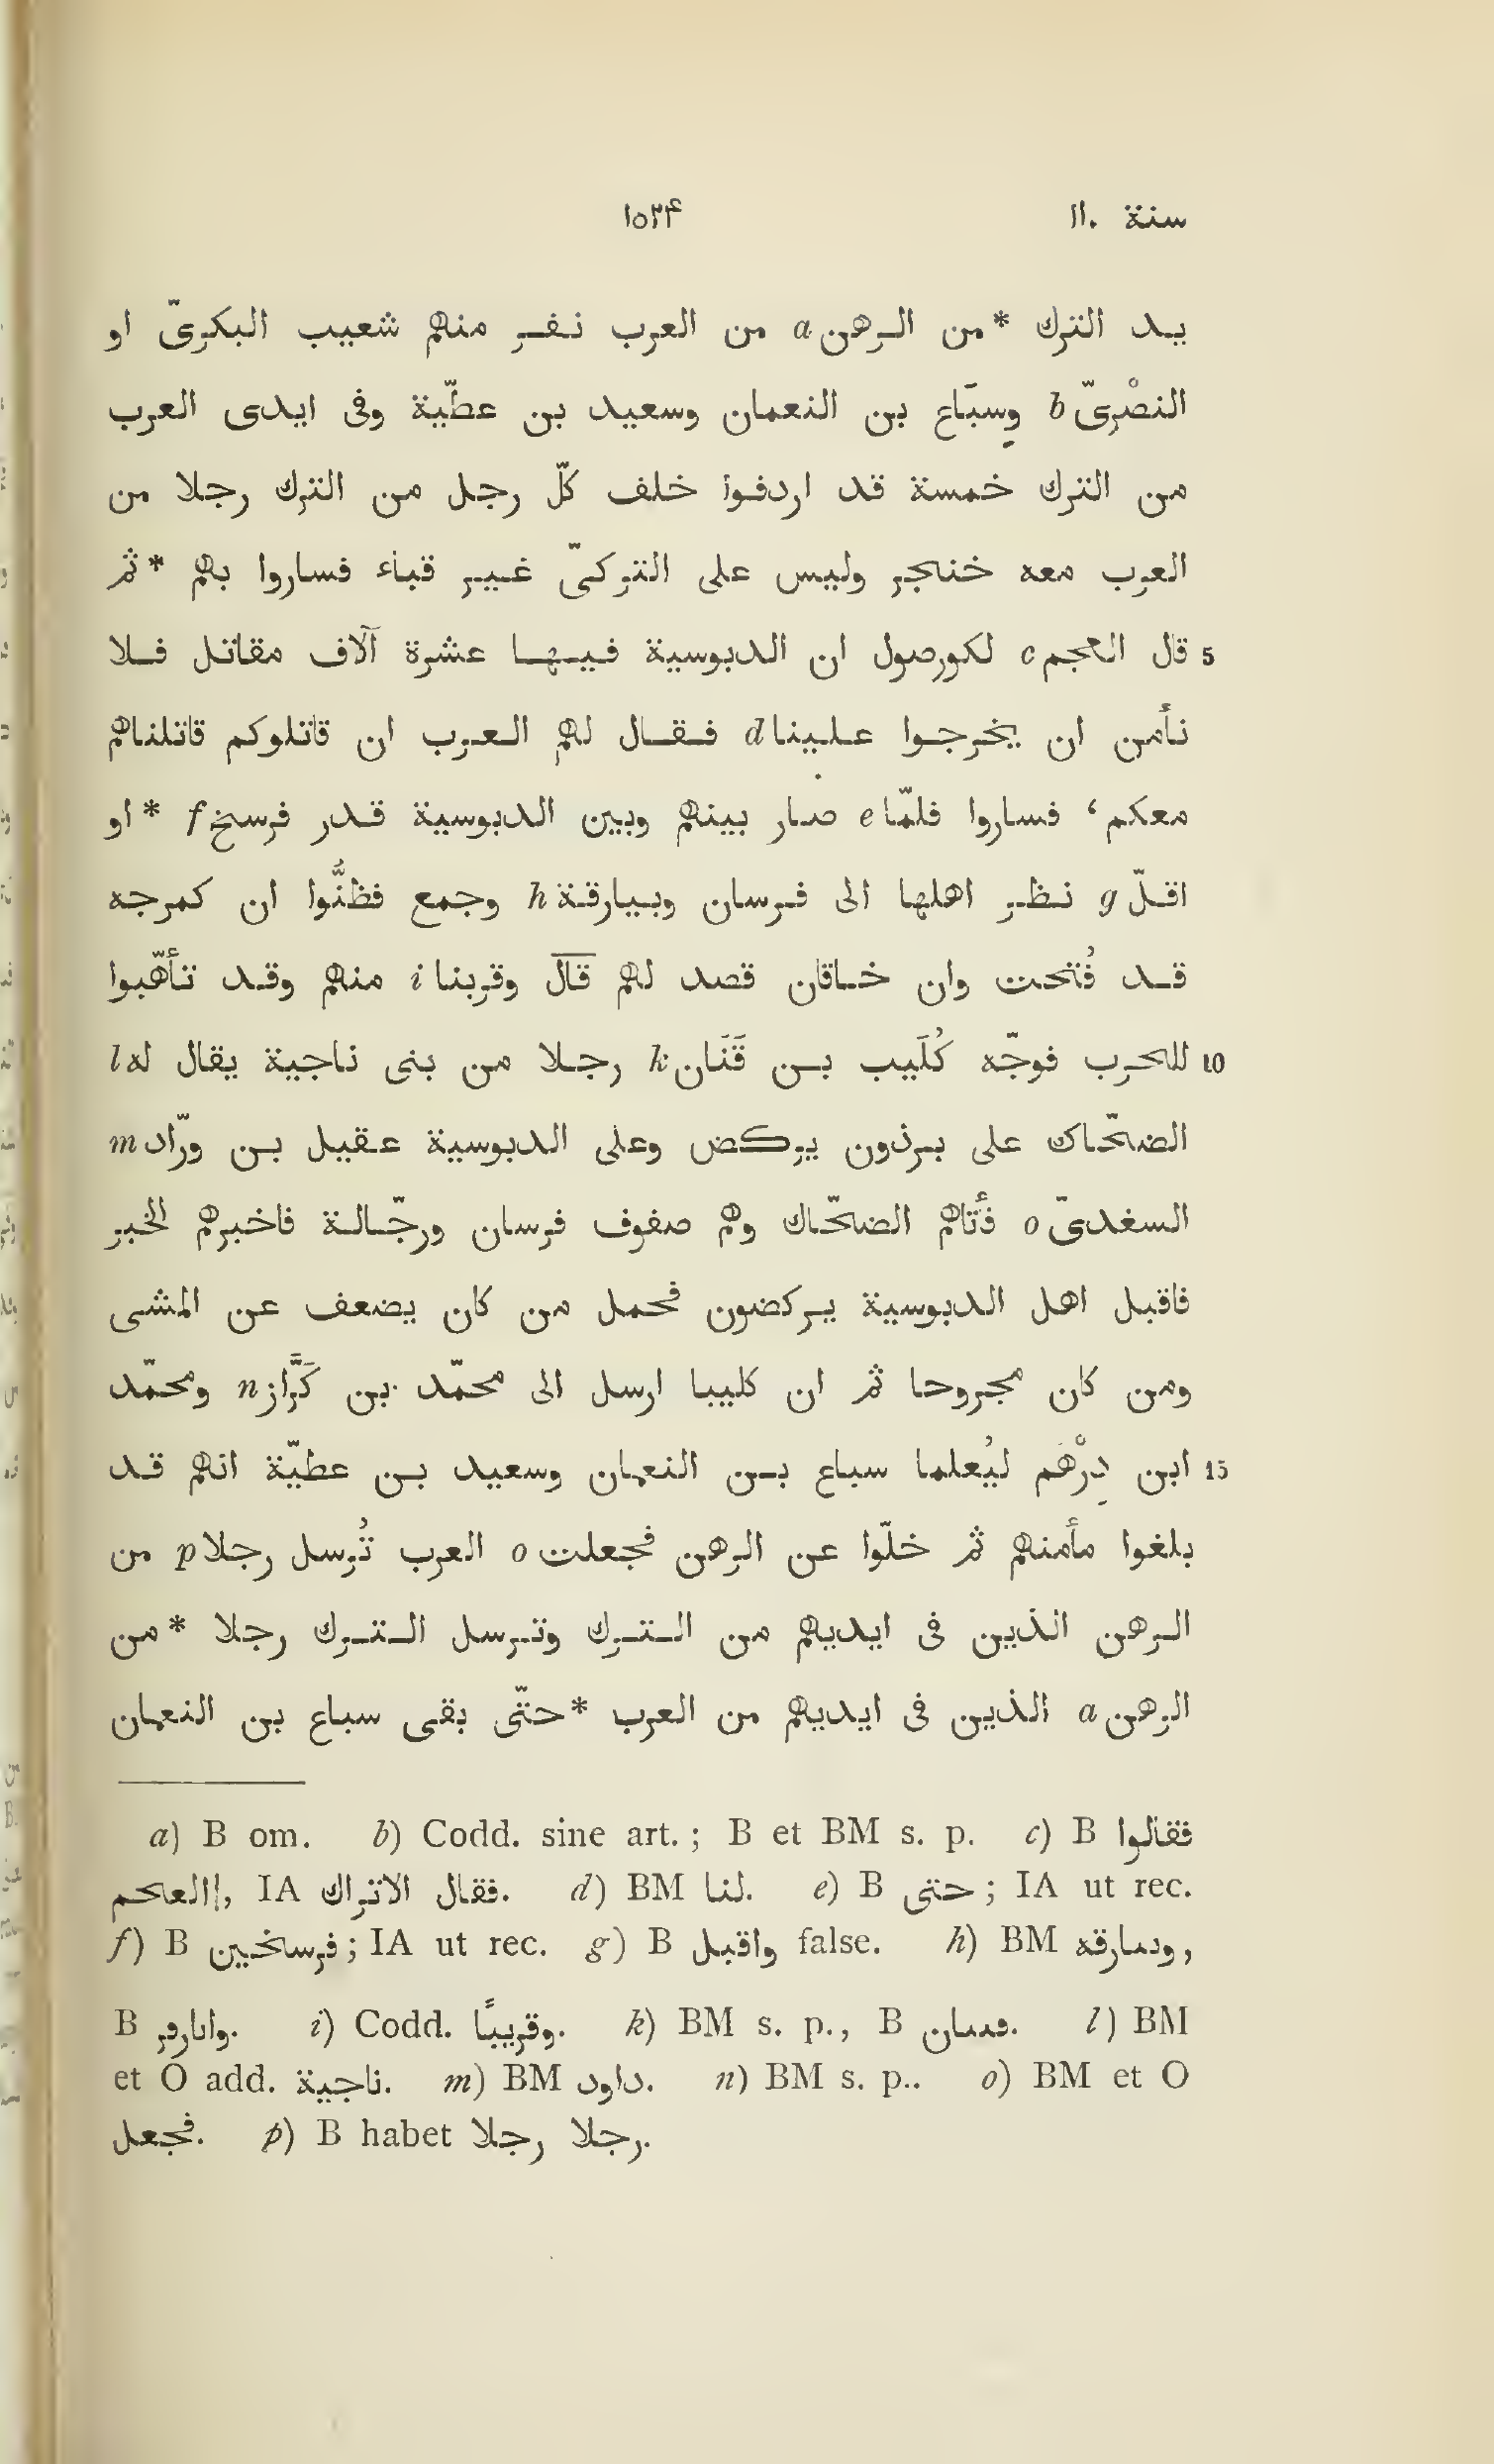 سنة ١١٠ ١٥٢۴
يد الترك *من الرهن a من العرب نفر منهم شعيب البكرىّ او
النصْرىّ b وسِبَاع بن النعمان وسعيد بن عطيّة وفى ايدى العرب
من الترك خمسة قد اردفوا خلف كلّ رجل من الترك رجلا من
العرب معه خنجر وليس على التركىّ غير قباء فساروا بهم *ثم
5 قال العجم c لكورصول ان الدبوسية فيها عشرة آلاف مقاتل فلا
نأمن ان يخرجوا علينا d فقال لهم العرب ان قاتلوكم قاتلناهم
معكم، فساروا فلمّا e صار بينهم وبين الدبوسية قدر فرسخ f *او
اقلّ g نظر اهلها الى فرسان وبيارقة h وجمع فظنُّوا ان كمرجه
قد فُتحت وان خاقان قصد لهم قال وقربنا i منهم وقد تأهّبوا
10 للحرب فوجّه كُلَيب بن قَنَان k رجلا من بنى ناجية يقال له l
الضحّاك على برذون يركض وعلى الدبوسية عقيل بن ورّاد m
السغدىّ o فأَتاهم الضحّاك وهم صفوف فرسان ورجّالة فاخبرهم الخبر
فاقبل اهل الدبوسية يركضون فحمل من كان يضعف عن المشى
ومن كان مجروحا ثم ان كليبا ارسل الى محمّد بن كَرَّاز n ومحمّد
15 ابن دِرْهَم ليُعلما سباع بن النعمان وسعيد بن عطيّة انهم قد
بلغوا مأمنهم ثم خلّوا عن الرهن فجعلت o العرب تُرسل رجلا p من
الرهن الذين فى ايديهم من الترك وترسل الترك رجلا *من
الرهن a الذين فى ايديهم من العرب *حتّى بقى سباع بن النعمان
a) B om. b) Codd. sine art.; B et BM s. p. c) B فقالوا
االعحم, IA فقال الاتراك. d) BM لنا. e) B حتى; IA ut rec.
f) B فرسخين; IA ut rec. g) B واقبل false. h) BM وسارقه,
B. i) Codd. وقريبًا. k) BM s. p., B. l) BM
et O add. ناجية. m) BM داود. n) BM s. p.. o) BM et O
فجعل. p) B habet رجلا رجلا.